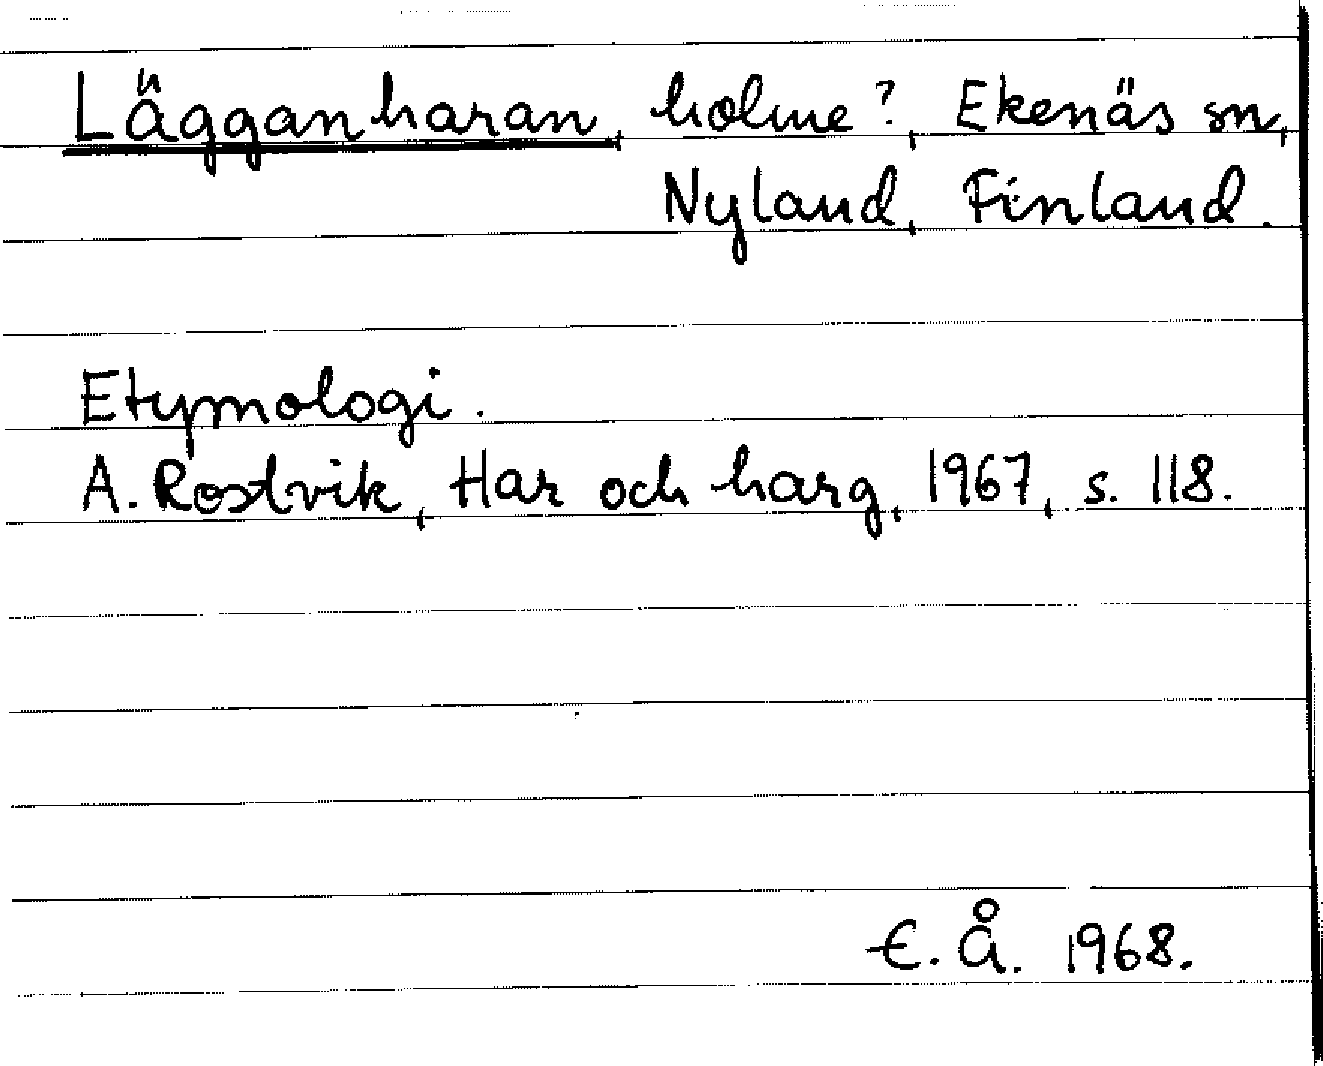 Lägganharan, holme?, Ekenäs sn,
Nyland, Finland.
Etymologi.
A. Rostvik, Har och harg, 1967, s. 118.
E. Å. 1968.